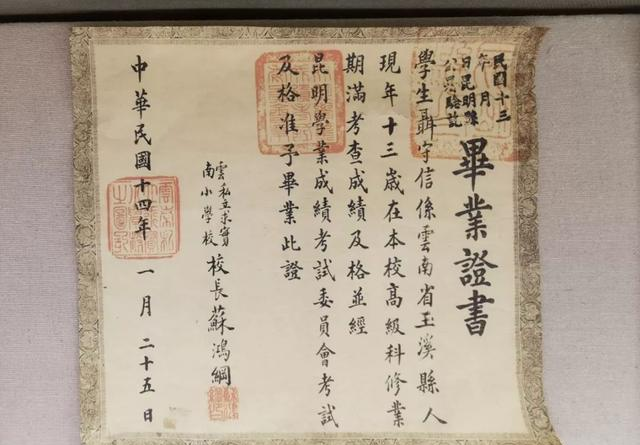 民國十三
年 月
日昆明縣
公署驗訖
畢業證書
學生聶守信係雲南省玉溪縣人
現年十三歲在本校高級科修業
期滿考查成績及格並經
昆明學業成績考試委員會考試
及格准予畢業此證
雲私立求實
南小學校
校長蘇鴻綱
中華民國十四年一月二十五日